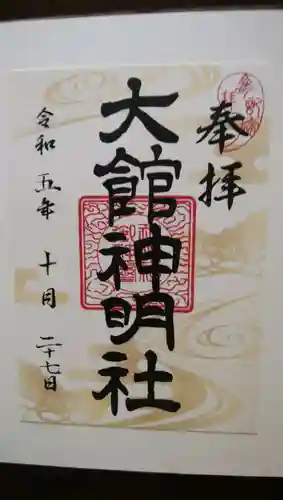 奉拝
大館神明社
令和五年 十月 二十七日